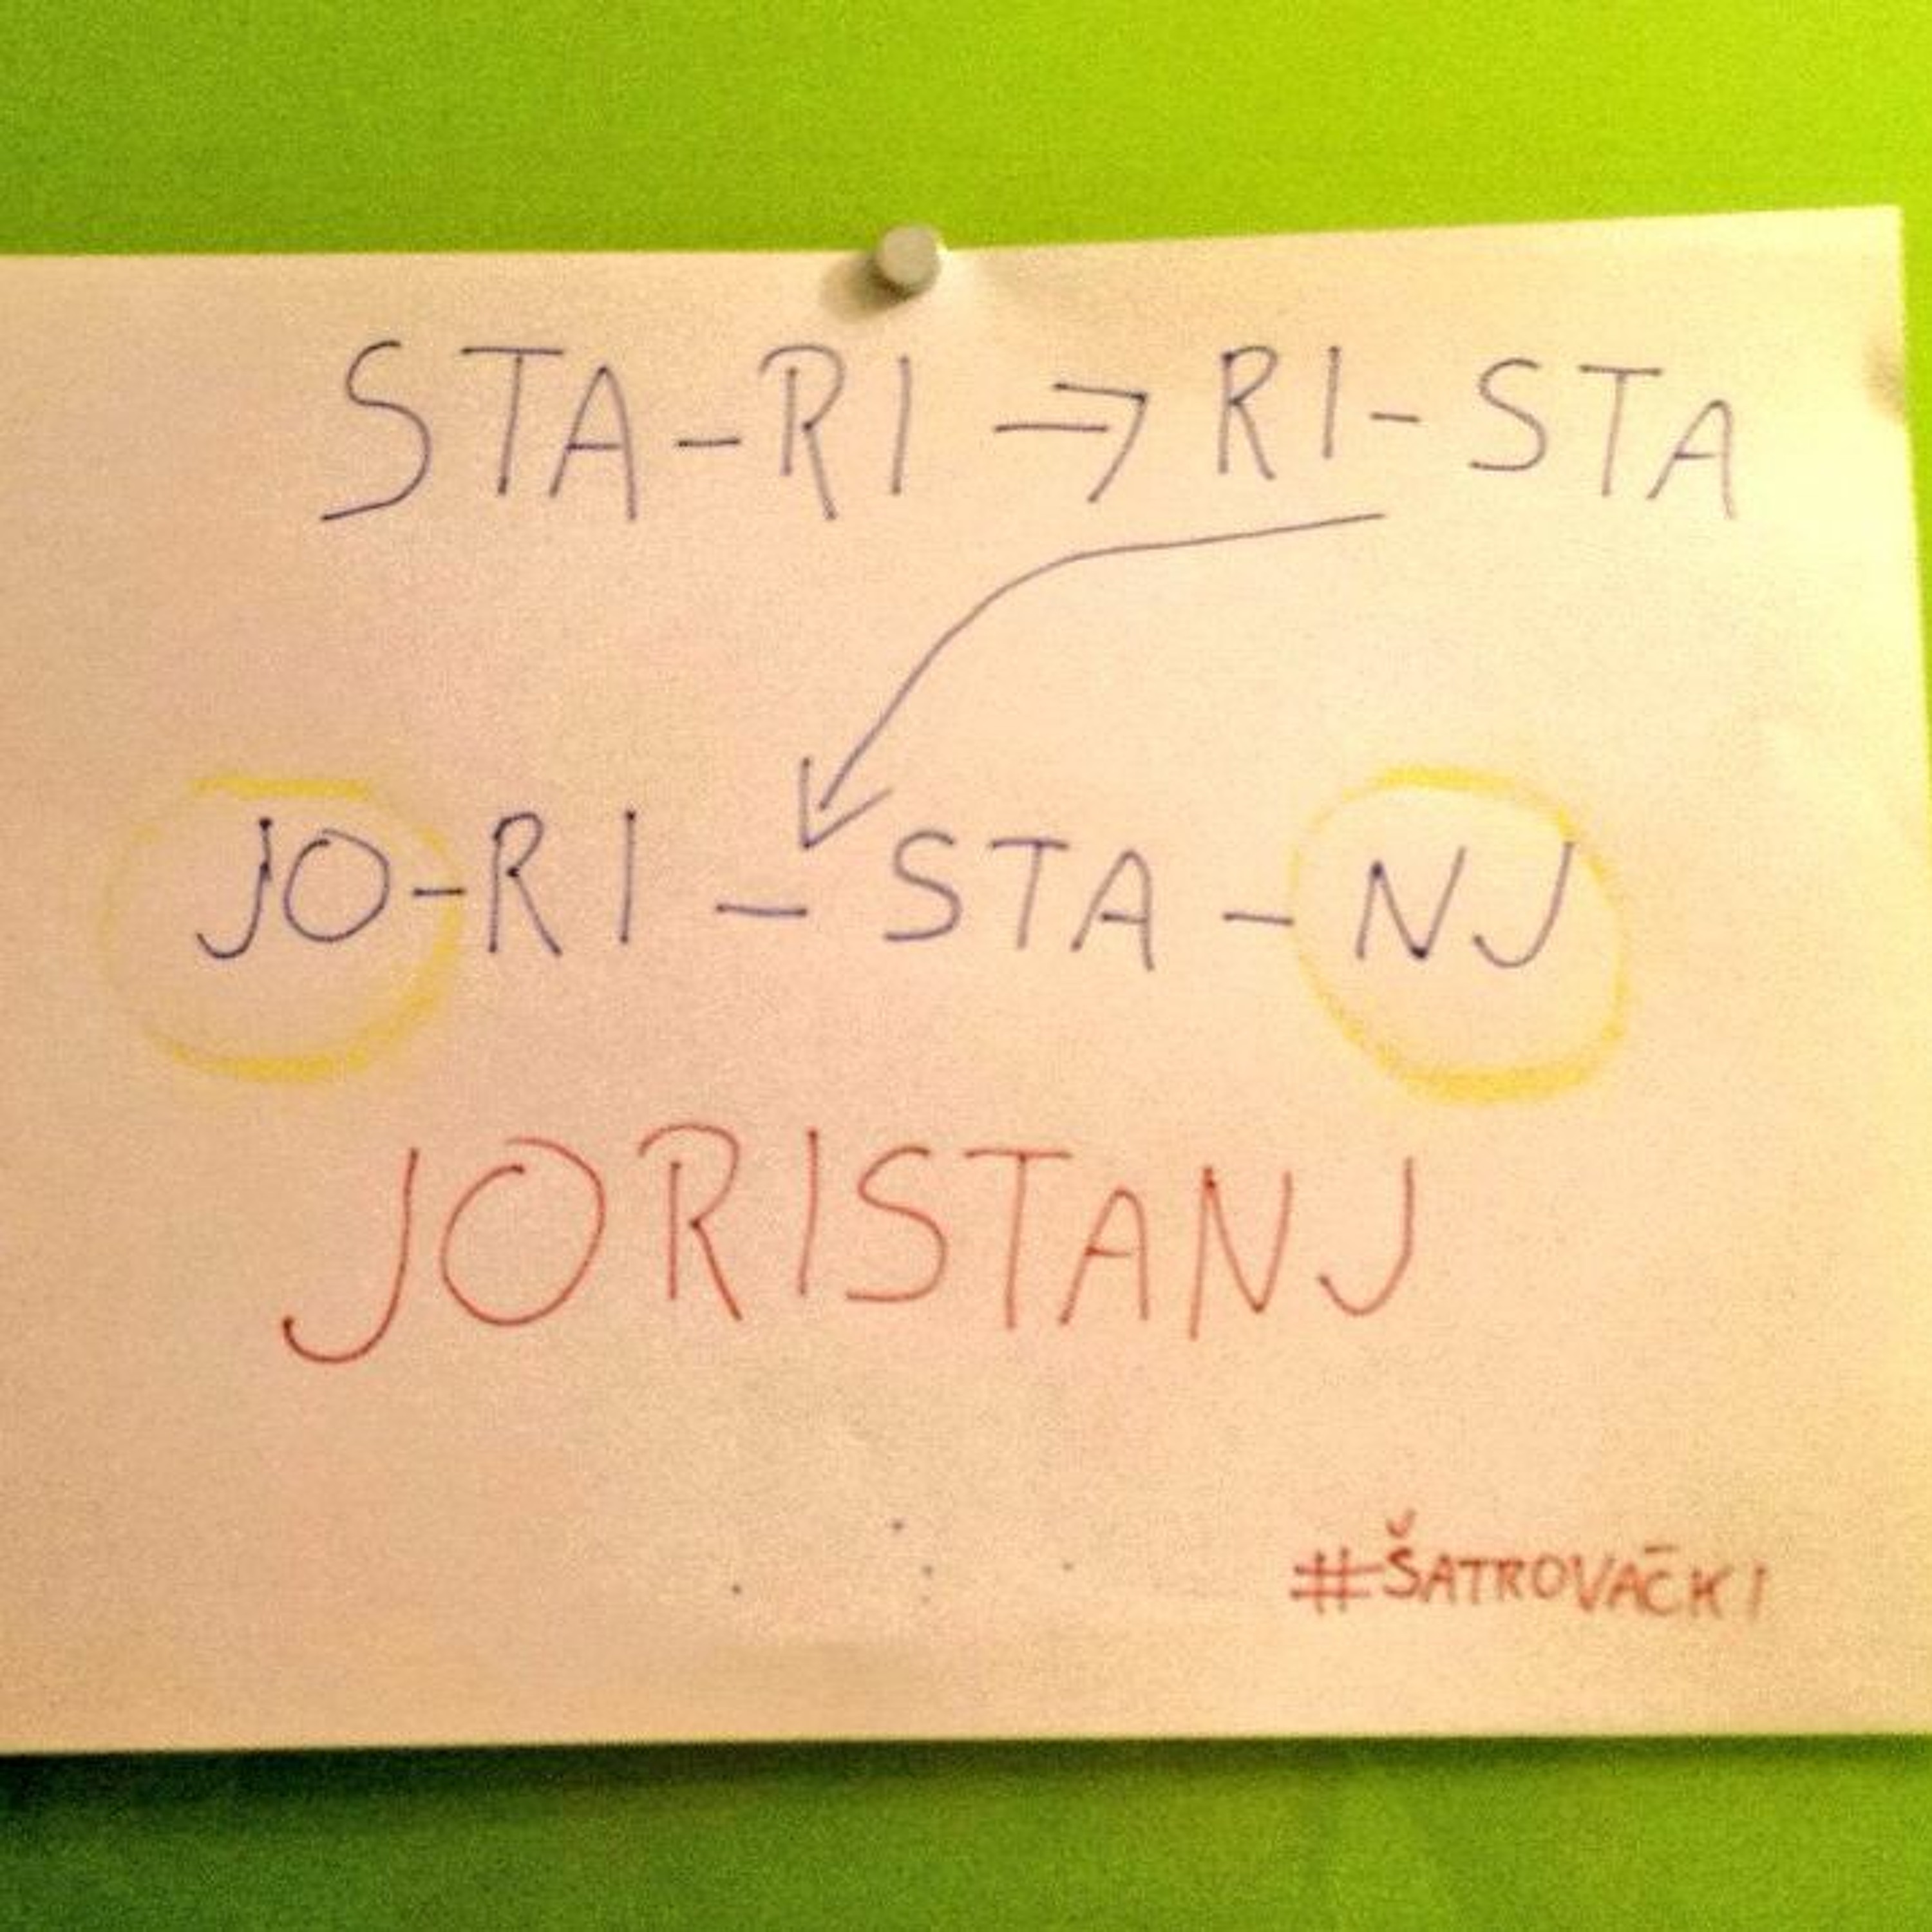 STA-RI → RI-STA
JO-RI-STA-NJ
JORISTANJ
#ŠATROVAČKI